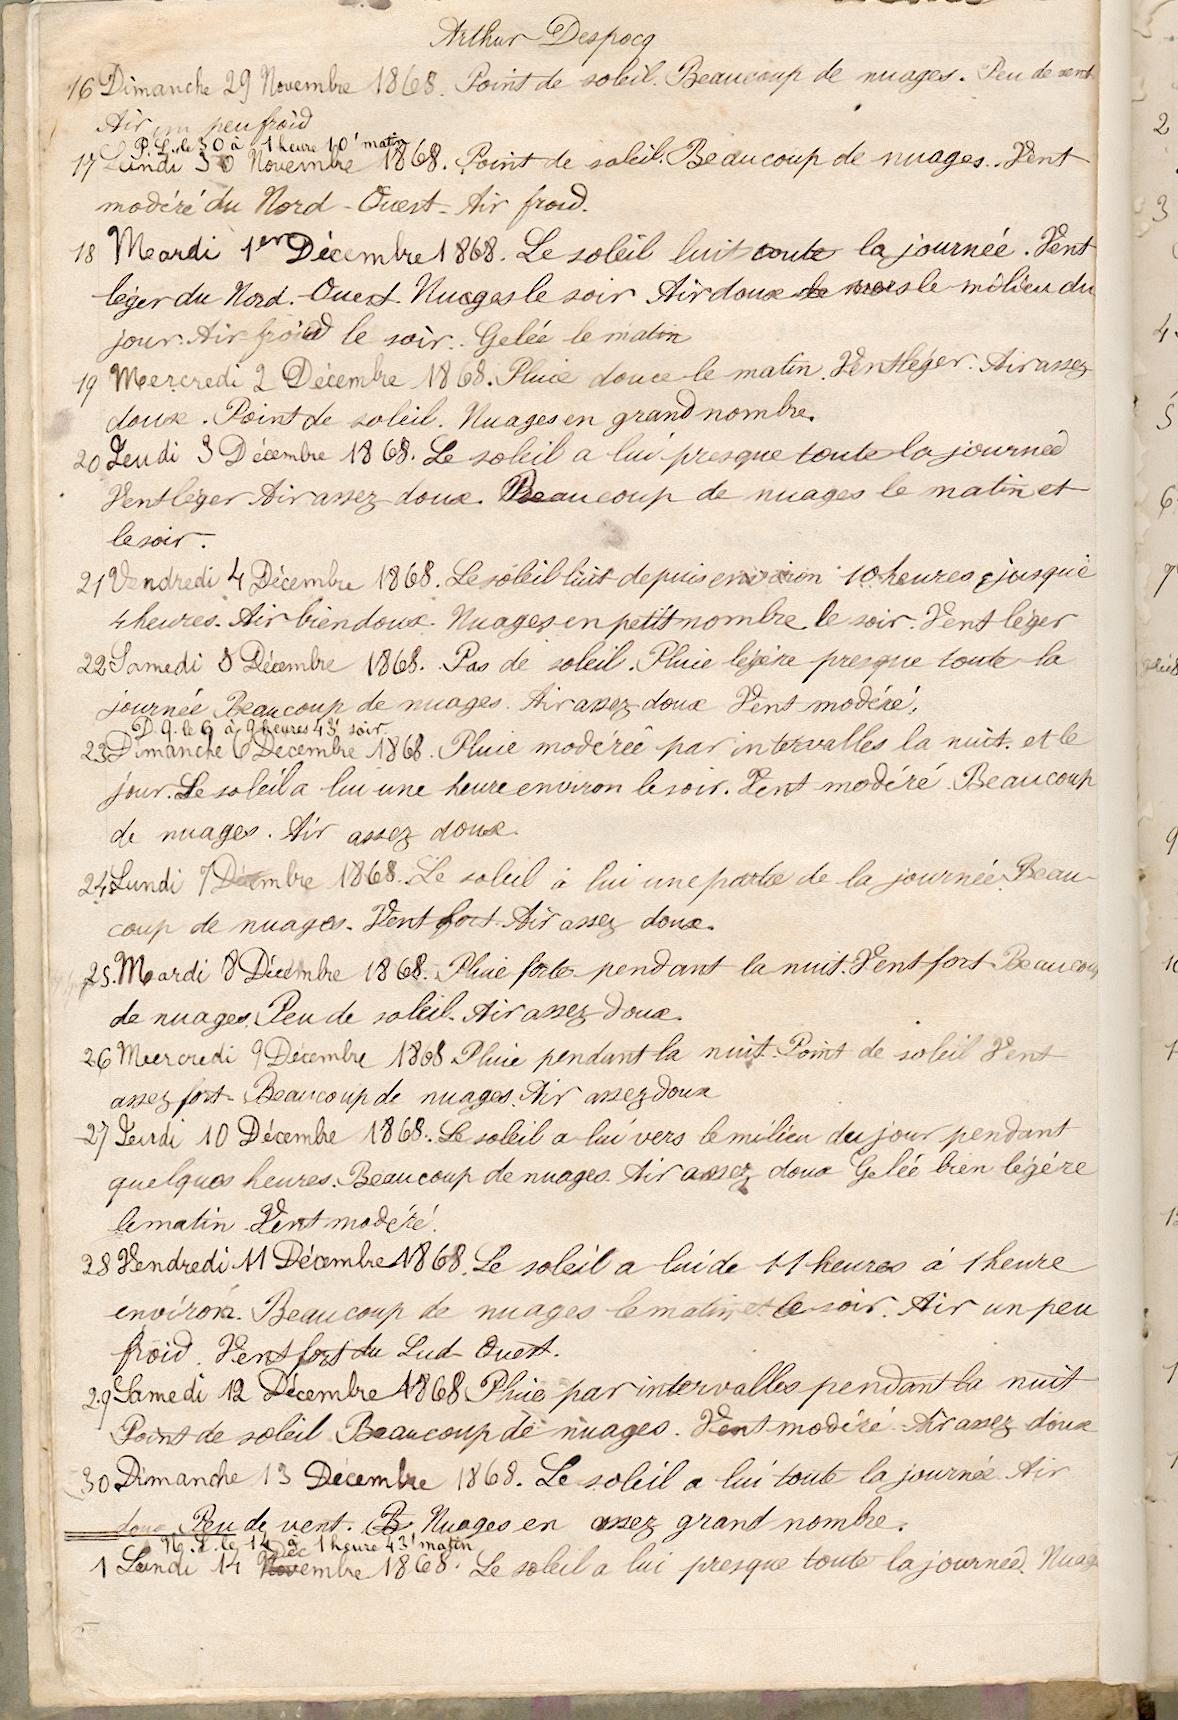 Arthur Despocq
16 Dimanche 29 Novembre 1868. Point de soleil. Beaucoup de nuages. Peu de vent
Air un peu froid
P. L. le 30 à 1 heure 10' matin
17 Lundi 30 Novembre 1868. Point de soleil. Beaucoup de nuages. Vent
modéré du Nord-Ouest. Air froid.
18 Mardi 1er Décembre 1868. Le soleil luit toute la journée. Vent
léger du Nord-Ouest. Nuages le soir Air doux le vers le milieu du
jour. Air froid le soir. Gelée le matin
19 Mercredi 2 Décembre 1868. Pluie douce le matin. Vent léger. Air assez
doux. Point de soleil. Nuages en grand nombre.
20 Jeudi 3 Décembre 1868. Le soleil a lui presque toute la journée
Vent léger Air assez doux. Beaucoup de nuages le matin et
le soir.
21 Vendredi 4 Décembre 1868. Le soleil luit depuis environ 10 heures jusque
4 heures. Air bien doux. Nuages en petit nombre le soir. Vent léger
22 Samedi 5 Décembre 1868. Pas de soleil. Pluie légère presque toute la
journée Beaucoup de nuages. Air assez doux Vent modéré.
D. Q. le 6 à 9 heures 43' soir
23 Dimanche 6 Décembre 1868. Pluie modérée par intervalles la nuit et le
jour. Le soleil a lui une heure environ le soir. Vent modéré. Beaucoup
de nuages. Air assez doux.
24 Lundi 7 Décembre 1868. Le soleil à lui une partie de la journée. Beau-
coup de nuages. Vent fort. Air assez doux.
25. Mardi 8 Décembre 1868. Pluie forte pendant la nuit. Vent fort Beaucoup
de nuages. Peu de soleil. Air assez doux.
26 Mercredi 9 Décembre 1868 Pluie pendant la nuit. Point de soleil Vent
assez fort. Beaucoup de nuages. Air assez doux
27 Jeudi 10 Décembre 1868. Le soleil a lui vers le milieu du jour pendant
quelques heures. Beaucoup de nuages. Air assez doux Gelée bien légère
le matin Vent modéré.
28 Vendredi 11 Décembre 1868. Le soleil a lui de 11 heures à 1 heure
environ. Beaucoup de nuages le matin et le soir. Air un peu
froid. Vent fort du Sud Ouest.
29 Samedi 12 Décembre 1868 Pluie par intervalles pendant la nuit
Point de soleil Beaucoup de nuages. Vent modéré Air assez doux
30 Dimanche 13 Décembre 1868. Le soleil a lui toute la journée Air
doux Peu de vent. B Nuages en assez grand nombre.
N. L. le 14 à 1 heure 43' matin
Déc
1 Lundi 14 Novembre 1868. Le soleil a lui presque toute la journée. Nuag